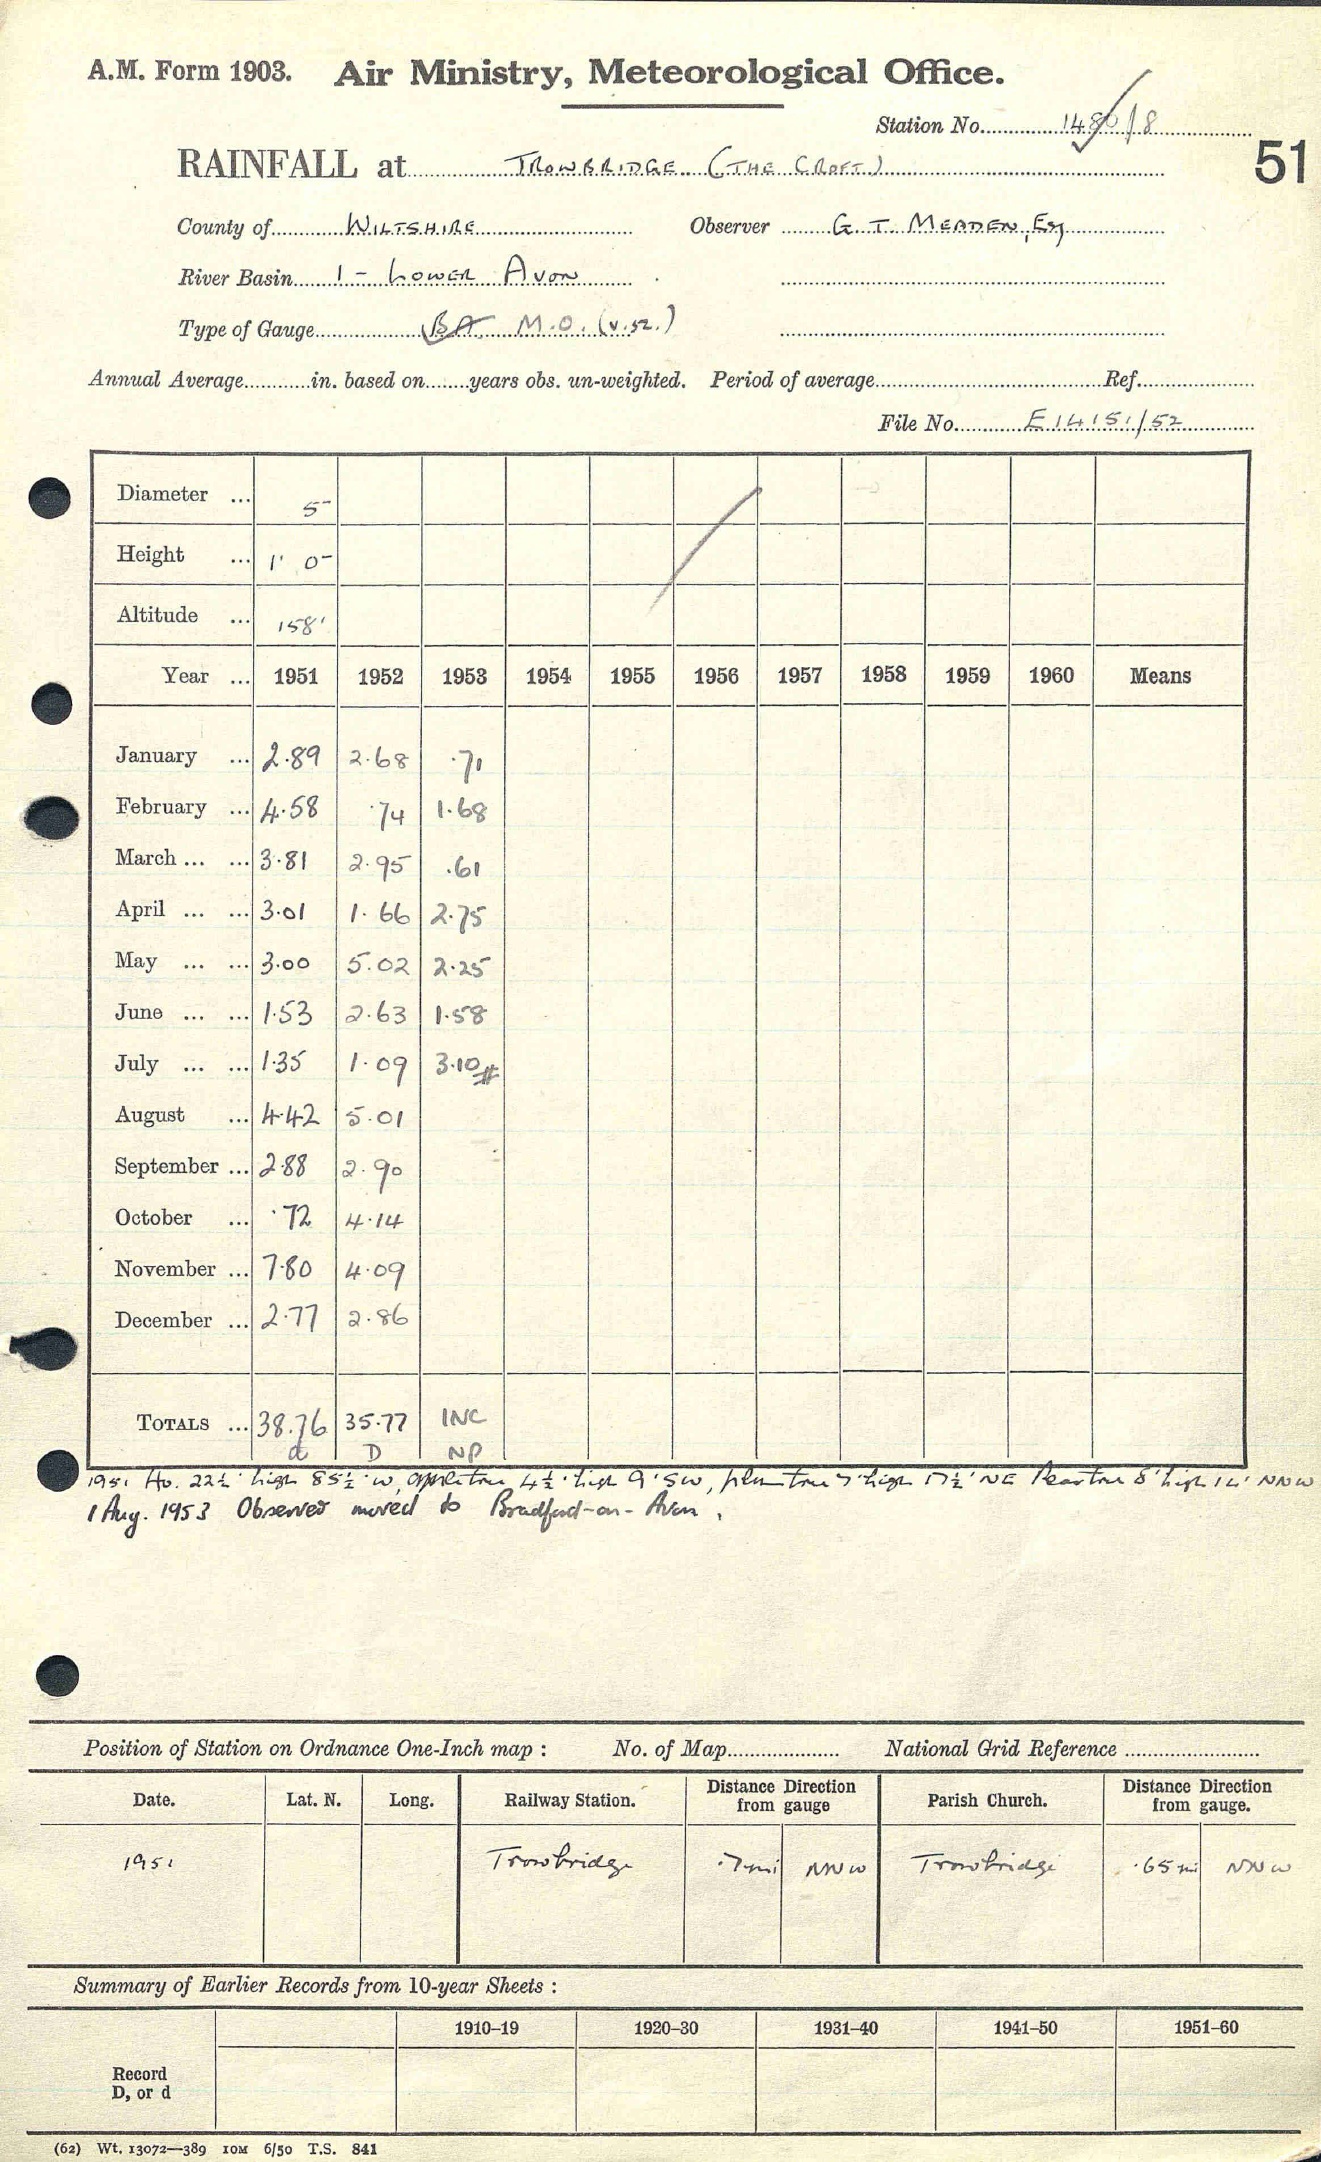 A.M. Form 1903. Air Ministry, Meteorological Office.
Station No. 1480/8
51
RAINFALL at TROWBRIDGE (THE CROFT)
County of WILTSHIRE Observer G. T. MEADEN, Esq
River Basin 1 - LOWER AVON
Type of Gauge BA M.O. (v.52.)
Annual Average in. based on years obs. un-weighted. Period of average Ref.
File No. E14151/52
Diameter ... 5
Height ... 1' 0
Altitude ... 158'
Year ... 1951 1952 1953 1954 1955 1956 1957 1958 1959 1960 Means
January ... 2.89 2.68 .71
February ... 4.58 .74 1.68
March ... ... 3.81 2.95 .61
April ... ... 3.01 1.66 2.75
May ... ... 3.00 5.02 2.25
June ... ... 1.53 2.63 1.58
July ... ... 1.35 1.09 3.10#
August ... 4.42 5.01
September ... 2.88 2.90
October ... .72 4.14
November ... 7.80 4.09
December ... 2.77 2.86
TOTALS ... 38.76 35.77 INC
d D NP
1951 Ho. 22½' high 85½' W, apple tree 4½' high 9' SW, plum tree 7' high 17½' NE Pear tree 8' high 14' NNW
1 Aug. 1953 Observer moved to Bradford-on-Avon.
Position of Station on Ordnance One-Inch map : No. of Map National Grid Reference
Date. Lat. N. Long. Railway Station. Distance Direction from gauge Parish Church. Distance Direction from gauge.
1951 Trowbridge .7 mi NNW Trowbridge .65 mi NNW
Summary of Earlier Records from 10-year Sheets :
1910–19 1920–30 1931–40 1941–50 1951–60
Record
D, or d
(62) Wt. 13072—389 10M 6/50 T.S. 841